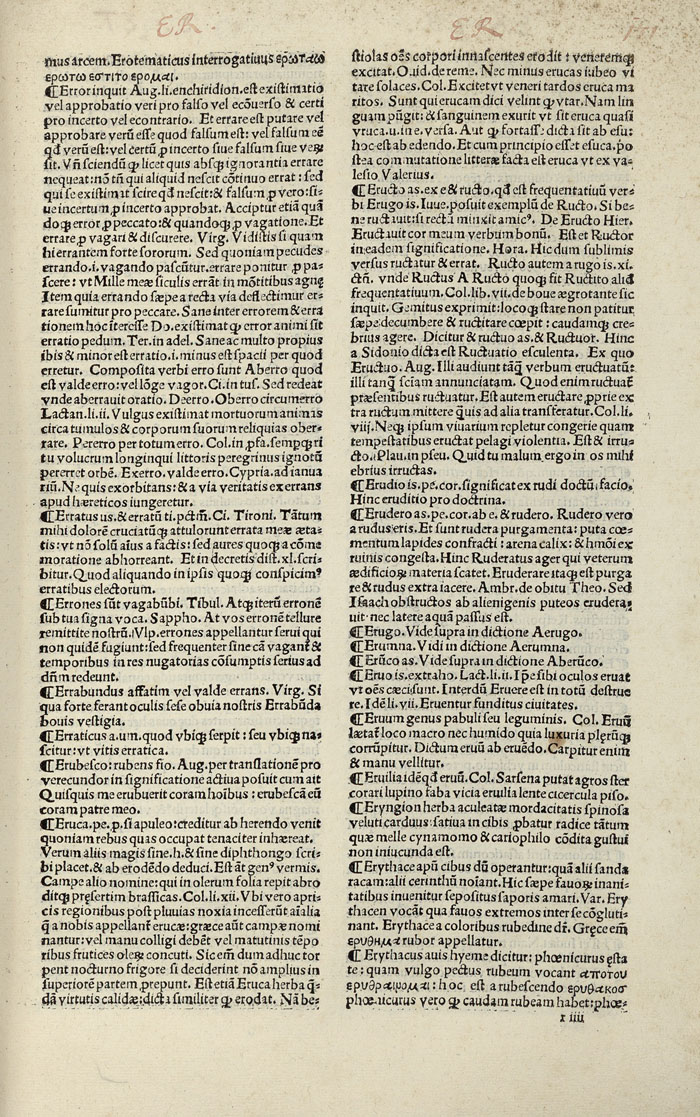 ER
ER
151
mus arcem. Erotematicus interrogatiuus ερωταω
ερωτω εστιτο ερομαι.
¶Error inquit Aug. li. enchiridion. est existimatio
vel approbatio veri pro falso vel ecōuerso & certi
pro incerto vel econtrario. Et errare est putare vel
approbare verū esse quod falsum est: vel falsum eē
qđ verū est: vel certū ꝓ incerto siue falsum siue veꝝ
sit. Vñ sciendū ꝙ licet quis absqꝫ ignorantia errare
nequeat: nō tñ qui aliquid nescit cōtinuo errat: sed
qui se existimat scire qđ nescit: & falsum ꝓ vero: si-
ue incertum ꝓ incerto approbat. Accipitur etiā quā
doqꝫ error ꝓ peccato: & quandoqꝫ ꝓ vagatione. Et
errare ꝓ vagari & discurere. Virg. Vidistis si quam
hi errantem forte sororum. Sed quoniam pecudes
errando .i. vagando pascūtur. errare ponitur ꝓ pa-
scere: vt Mille meæ siculis errāt in mōtibus agnę
Item quia errando sæpe a recta via deflectimur er-
rare sumitur pro peccare. Sane inter errorem & erra
tionem hoc īteresse Do. existimat ꝙ error animi sit
erratio pedum. Ter. in adel. Sane ac multo propius
ibis & minor est erratio .i. minus est spacii per quod
erretur. Composita verbi erro sunt Aberro quod
est valde erro: vel lōge vagor. Ci. in tus. Sed redeat
vnde aberrauit oratio. Deerro. Oberro circumerro
Lactan. li. ii. Vulgus existimat mortuorum animas
circa tumulos & corporum suorum reliquias ober-
rare. Pererro per totum erro. Col. in ꝓfa. sempqꝫ ri
tu volucrum longinqui littoris peregrinus ignotū
pererret orbē. Exerro. valde erro. Cypria. ad ianua
riū. Ne quis exorbitans: & a via veritatis exerrans
apud hæreticos iungeretur.
¶Erratus us. & erratū ti. pctm̄. Ci. Tironi. Tātum
mihi dolorē cruciatūqꝫ attulorunt errata meæ æta-
tis: vt nō solū aīus a factis: sed aures quoqꝫ a cōme
moratione abhorreant. Et in decretis dist. xl. scri-
bitur. Quod aliquando in ipsis quoqꝫ conspicimꝰ
erratibus electorum.
¶Errones sūt vagabūbi. Tibul. Atqꝫ iterū erronē
sub tua signa voca. Sappho. At vos erronē tellure
remittite nostrā. Vlp. errones appellantur serui qui
non quidē fugiunt: sed frequenter sine cā vagant᷑ &
temporibus in res nugatorias cōsumptis serius ad
dñm redeunt.
¶Errabundus affatim vel valde errans. Virg. Si
qua forte ferant oculis sese obuia nostris Errabūda
bouis vestigia.
¶Erraticus a. um. quod vbiqꝫ serpit: seu vbiqꝫ na-
scitur: vt vitis erratica.
¶Erubesco: rubens fio. Aug. per translationē pro
verecundor in significatione actiua posuit cum ait
Quisquis me erubuerit coram hoībus: erubescā eū
coram patre meo.
¶Eruca. pe. ꝓ. si apuleo: creditur ab herendo venit
quoniam rebus quas occupat tenaciter inhæreat.
Verum aliis magis sine .h. & sine diphthongo scri-
bi placet. & ab erodēdo deduci. Est āt genꝰ vermis.
Campe alio nomine: qui in olerum folia repit abro
ditqꝫ pręsertim brassicas. Col. li. xii. Vbi vero apri-
cis regionibus post pluuias noxia incesserūt aīalia
ꝗ̄ a nobis appellant᷑ erucæ: græce aūt campæ nomi
nantur: vel manu colligi debēt vel matutinis tēpo
ribus frutices oleꝝ concuti. Sic em̄ dum adhuc tor
pent nocturno frigore si deciderint nō amplius in
superiorē partem ꝓrepunt. Est etiā Eruca herba q̄-
dā virtutis calidæ: dicta similiter ꝙ erodat. Nā be-
stiolas oēs corpori innascentes erodit: veneremqꝫ
excitat. O. uid. de reme. Nec minus erucas iubeo vi
tare solaces. Col. Excitet vt veneri tardos eruca ma
ritos. Sunt qui erucam dici velint ꝙ vtar. Nam lin
guam pūgit: & sanguinem exurit vt sit eruca quasi
vruca. u. in e. versa. Aut ꝙ fortasse dicta sit ab esu:
hoc est ab edendo. Et cum principio esset esuca. po
stea commutatione litteræ facta est eruca vt ex va-
lesio Valerius.
¶Eructo as. ex e & ructo. qđ est frequentatiuū ver-
bi Erugo is. Iuue. posuit exemplū de Ructo. Si be-
ne ructauit: si rectū minxit amicꝰ. De Eructo Hier.
Eructauit cor meum verbum bonū. Est et Ructor
in eadem significatione. Hora. Hic dum sublimis
versus ructatur & errat. Ructo autem a rugo is. xi.
ctū. vnde Ructus A Ructo quoqꝫ fit Ructito aliđ
frequentatiuum. Col. lib. vii. de boue ægrotante sic
inquit. Gemitus exprimit: locoqꝫ stare non patitur
sæpe decumbere & ructitare cœpit: caudamqꝫ cre-
brius agere. Dicitur & ructuo as. & Ructuor. Hinc
a Sidonio dicta est Ructuatio esculenta. Ex quo
Eructuo. Aug. Illi audiunt tāꝗ̄ verbum eructuatū:
illi tanꝗ̄ sciam annunciatam. Quod enim ructuat᷑
præsentibus ructuatur. Est autem eructare ꝓprie ex
tra ructum mittere ꝗ̄uis ad alia transferatur. Col. li.
viij. Neqꝫ ipsum viuarium repletur congerie quam
tempestatibus eructat pelagi violentia. Est & irru-
cto. Plau. in pseu. Quid tu malum ergo in os mihi
ebrius irructas.
¶Erudio is. pe. cor. significat ex rudi doctū facio.
Hinc eruditio pro doctrina.
¶Erudero as. pe. cor. ab e. & rudero. Rudero vero
a rudus eris. Et sunt rudera purgamenta: puta cœ-
mentum lapides confracti: arena calix: & hmōi ex
ruinis congesta. Hinc Ruderatus ager qui veterum
ædificioꝝ materia scatet. Eruderare itaqꝫ est purga
re & rudus extra iacere. Ambr. de obitu Theo. Sed
Isaach obstructos ab alienigenis puteos erudera-
uit. nec latere aqua passus est.
¶Erugo. Vide supra in dictione Aerugo.
¶Erumna. Vidi in dictione Aerumna.
¶Erūco as. Vide supra in dictione Aberūco.
¶Eruo is. extraho. Lact. li. ii. Ipē sibi oculos eruat
vt oēs cæci sunt. Interdū Eruere est in totū destrue
re. Idē li. vii. Eruentur funditus ciuitates.
¶Eruum genus pabuli seu leguminis. Col. Eruū
lætat᷑ loco macro nec humido quia luxuria plerūqꝫ
corrūpitur. Dictum eruū ab eruēdo. Carpitur enim
& manu vellitur.
¶Eruilia idē qđ eruū. Col. Sarsena putat agros ster
corari lupino faba vicia eruilia lente cicercula piso.
¶Eryngion herba aculeatæ mordacitatis spinosa
veluti carduus: satiua in cibis ꝓbatur radice tātum
quæ melle cynamomo & cariophilo cōdita gustui
non iniucunda est.
¶Erythace apū cibus dū operantur: quā alii sanda
racam: alii cerinthū noīant. Hic sæpe fauoꝝ inani-
tatibus inuenitur sepositus saporis amari. Var. Ery
thacen vocāt qua fauos extremos inter se cōgluti-
nant. Erythace a coloribus rubedine dr̄. Gręce em̄
ερυθημα rubor appellatur.
¶Erythacus auis hyeme dicitur: phœnicurus ęsta
te: quam vulgo pectus rubeum vocant αποτου
ερυθραιρομαι: hoc est a rubescendo ερυθακος
phœnicurus vero ꝙ caudam rubeam habet: phœ-
r iiii